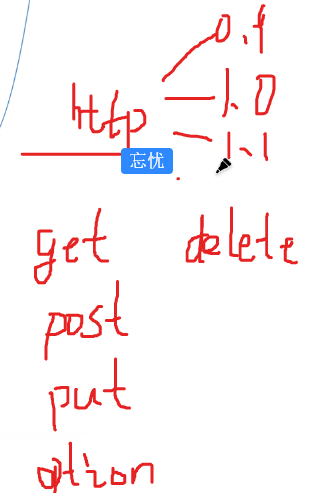 0.9
http 1.0
1.1
忘忧
get delete
post
put
option